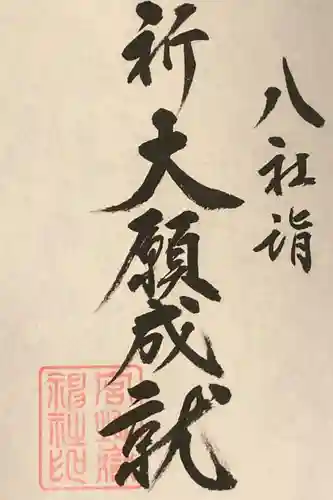 八社詣
祈大願成就